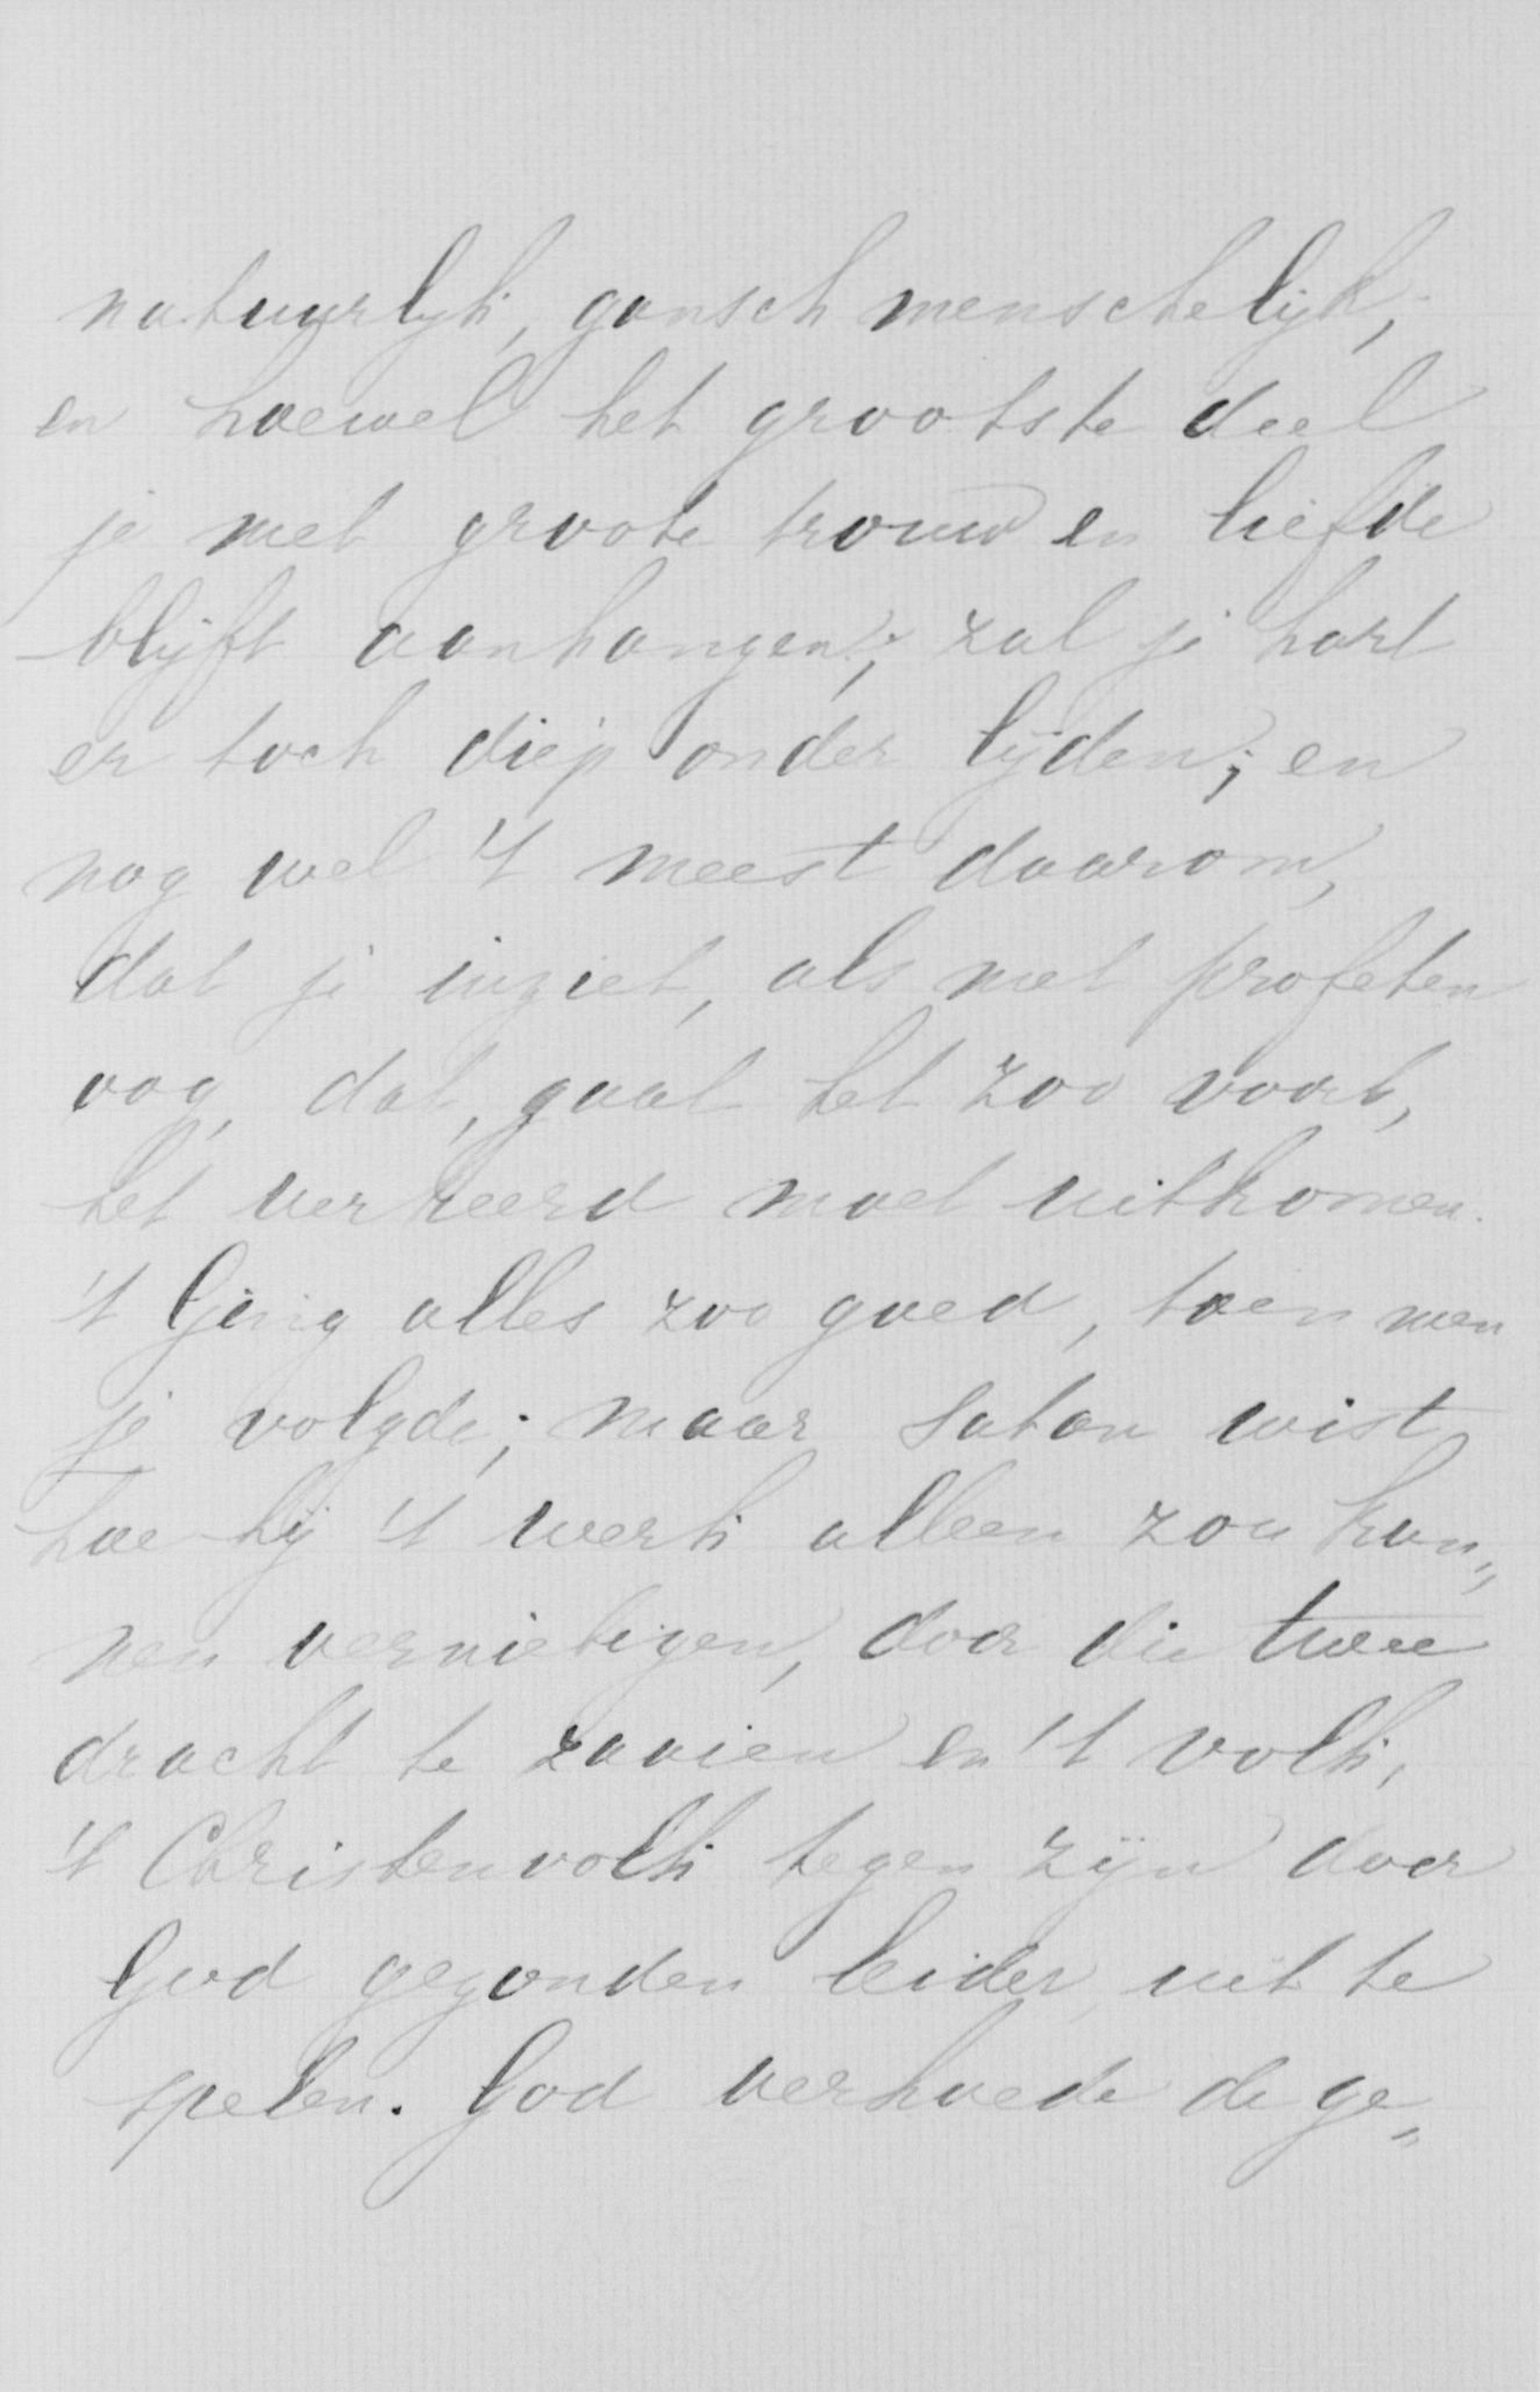 natuurlijk, gansch menschelijk,
en hoewel het grootste deel
je met groote trouw en liefde
blijft aanhangen; zal je hart
er toch diep onder lijden; en
nog wel 't meest daarom,
dat je inziet, als met profeten
oog, dat, gaat het zoo voort,
het verkeerd moet uitkomen.
't Ging alles zoo goed, toen men
je volgde; maar Satan wist
hoe hij 't werk alleen zou kun„
nen vernietigen, door die twee
dracht te zaaien en 't volk,
't Christenvolk tegen zijn door
God gezonden leider uit te
spelen. God verhoede de ge„